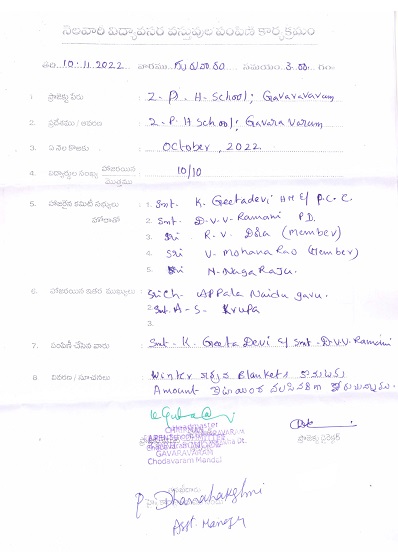 నెలవారి విద్యావసర వస్తువుల పంపిణి కార్యక్రమం
తేది. 10.11.2022 వారము గురువారం సమయం 3.00 గం
1. ప్రాజెక్టు పేరు : Z-P. H-School; Gavaravaram
2. ప్రదేశము / అడ్రసు : Z-P. H School; Gavaravaram
3. ఏ నెల కొరకు : October, 2022.
4. విద్యార్థుల సంఖ్య హాజరయిన / మొత్తము : 10/10
5. హాజరైన కమిటీ సభ్యులు 1. Smt. K. Geetadevi HM & P.C.C.
2. Smt. D.V.V. Ramani P.D.
3. Sri. R.V. (Member)
4. Sri V. Mohana Rao (Member)
5. Sri N. Naga Raju.
6. హాజరయిన ఇతర ముఖ్యులు : 1. Sri Ch. Appala Naidu garu.
2. Smt. A-S- Krupa
3.
7. పంపిణీ చేసిన వారు : Smt-K-Geeta Devi & Smt-D.V.V-Ramani
8. వివరణ / సూచనలు : Winter Blankets
Amount
Headmaster
GAVARAVARAM
Chodavaram Mandal
ప్రాజెక్టు డైరెక్టర్
P. Dhanalakshmi
Asst. Manager